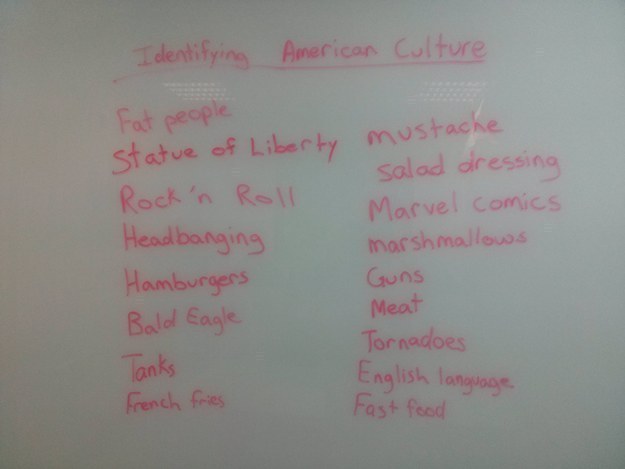 Identifying American Culture
Fat people
Statue of Liberty
Rock 'n Roll
Headbanging
Hamburgers
Bald Eagle
Tanks
French fries
mustache
salad dressing
Marvel comics
marshmallows
Guns
Meat
Tornadoes
English language
Fast food